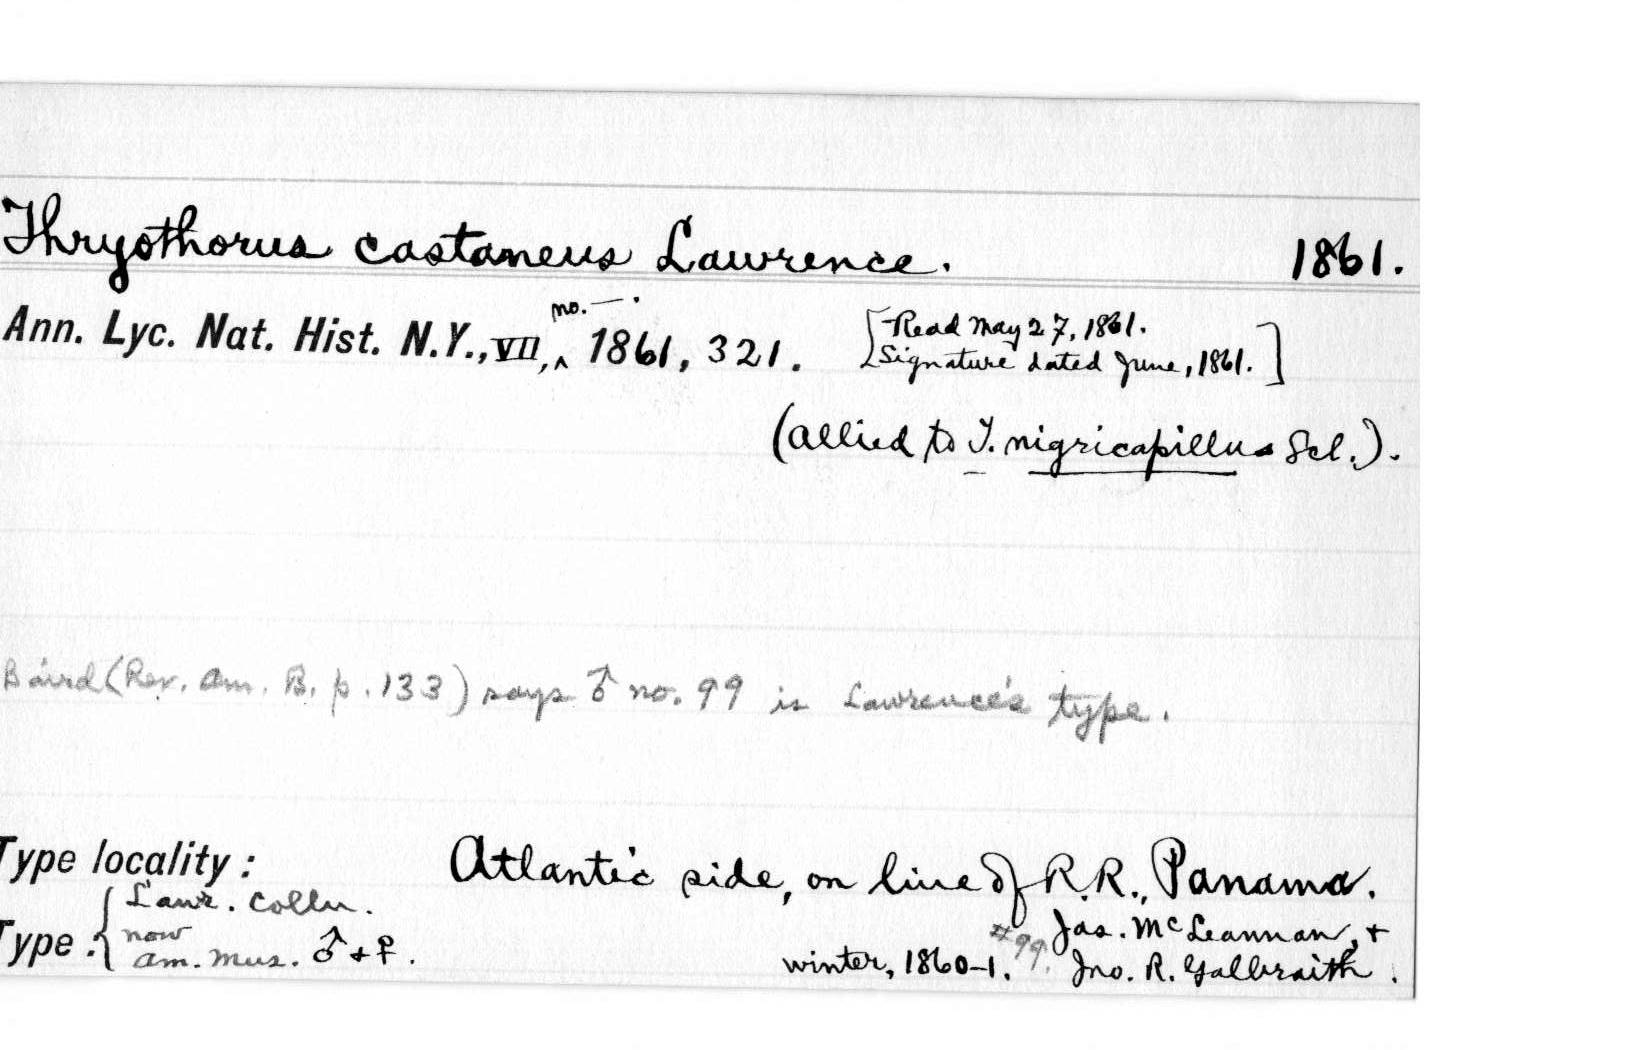 Thryothorus castaneus Lawrence. 1861.
Ann. Lyc. Nat. Hist. N.Y., VII, ^ no. —. 1861, 321. [Read May 27, 1861.
Signature dated June, 1861.]
(allied to T. nigricapillus Scl.).
Baird (Rev. Am. B. p. 133) says ♂ no. 99 is Lawrence's type.
Type locality: Atlantic side, on line of R.R., Panama.
Lawr. Colln.
Type: now #99. Jas. McLeannan, +
Am. Mus. ♂ + ♀. winter, 1860-1. Jno. R. Galbraith.